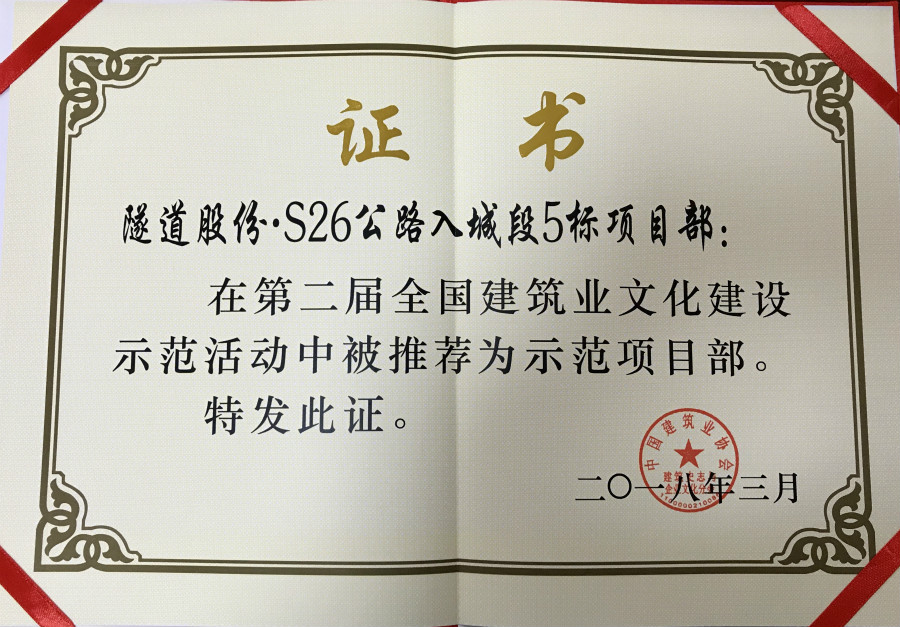 证书
隧道股份·S26公路入城段5标项目部：
在第二届全国建筑业文化建设
示范活动中被推荐为示范项目部。
特发此证。
中国建筑业协会
建筑史志与
企业文化分会
二〇一八年三月